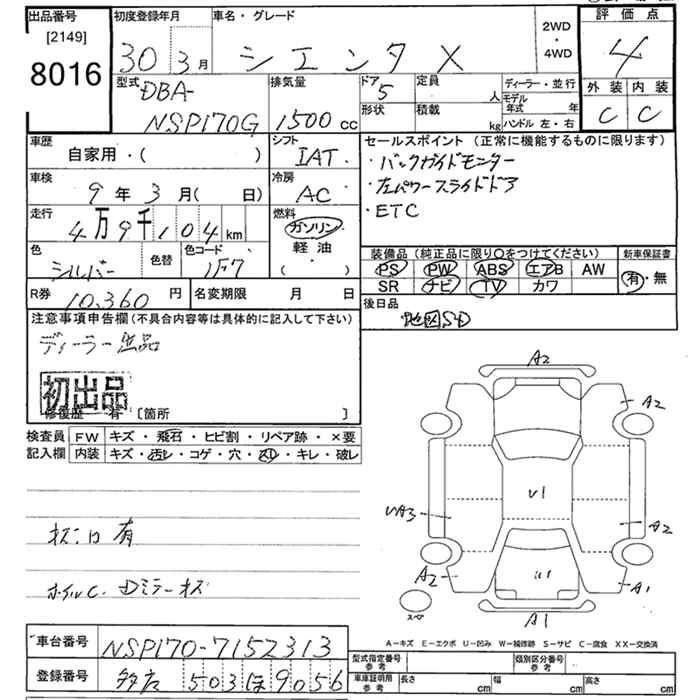 出品番号
[2149]
8016
初度登録年月
30 3月
車名・グレード
シエンタ X
2WD
・
4WD
評価点
4
外装 内装
C C
型式
DBA-
NSP170G
排気量
1500 cc
ドア
5
定員
人
形状
積載
kg
ディーラー・並行
モデル
年式 年
ハンドル 左・右
車歴
自家用・( )
シフト
IAT
セールスポイント (正常に機能するものに限ります)
・バックガイドモニター
・左パワースライドドア
・ETC
車検
9年3月( 日)
冷房
AC
走行
4万9千104km
燃料
ガソリン
軽油
・
( )
色
シルバー
色替
色コード
1F7
装備品 (純正品に限り○をつけてください)
PS PW ABS エアB AW
SR ナビ TV カワ
新車保証書
有・無
R券
10,360 円
名変期限 月 日
後日品
地図SD
注意事項申告欄(不具合内容等は具体的に記入して下さい)
ディーラー
初出品
修復歴 有 [箇所 ]
検査員
記入欄
FW キズ・飛石・ヒビ割・リペア跡・×要
内装 キズ・汚レ・コゲ・穴・スレ・キレ・破レ
A2
A2
U1
A2
A2
U1
A1
A1
スペア
キズ凹有
ホイルC. Dミラーキズ
A-キズ E-エクボ U-凹み W-補修跡 S-サビ C-腐食 XX-交換済
車台番号
NSP170-7152313
登録番号
503 ほ 9056
型式指定番号
参考
類別区分番号
参考
車庫証明用
参考
長さ cm
幅 cm
高さ cm